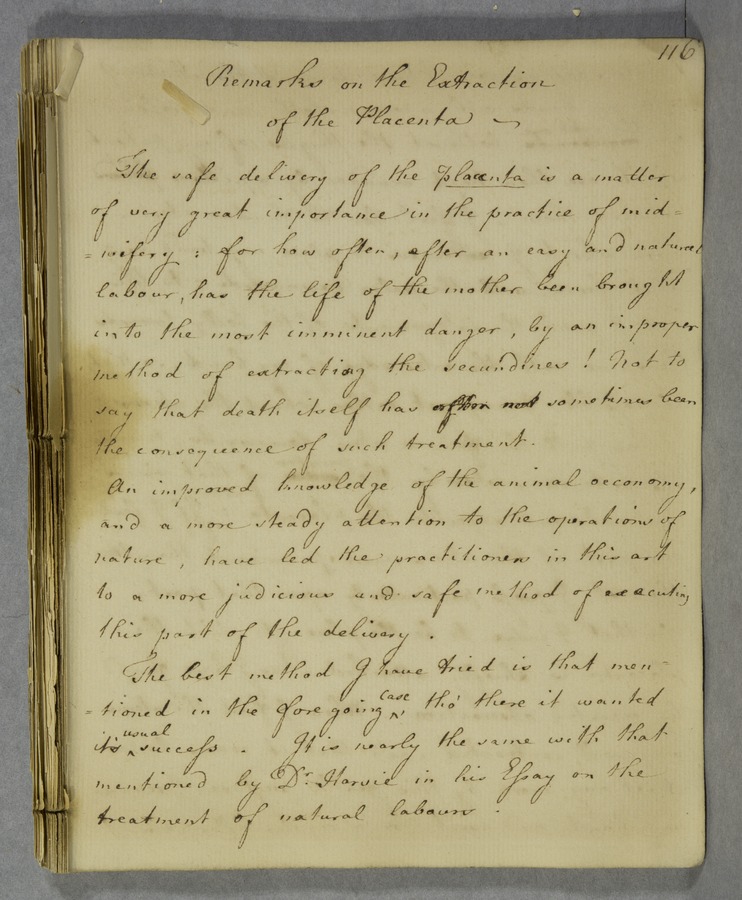 116
Remarks on the Extraction
of the Placenta ~
The safe delivery of the placenta is a matter
of very great importance in the practice of mid=
=wifery : for how often, after an easy and natural
labour, has the life of the mother been brought
into the most imminent danger, by an improper
method of extracting the secundines! Not to
say that death itself has sometimes been
the consequence of such treatment.
An improved knowledge of the animal oeconomy,
and a more steady attention to the operations of
nature, have led the practitioners in this art
to a more judicious and safe method of executing
this part of the delivery.
The best method I have tried is that men=
=tioned in the fore going case tho' there it wanted
its usual success. It is nearly the same with that
mentioned by Dr. Harvie in his Essay on the
treatment of natural labours.